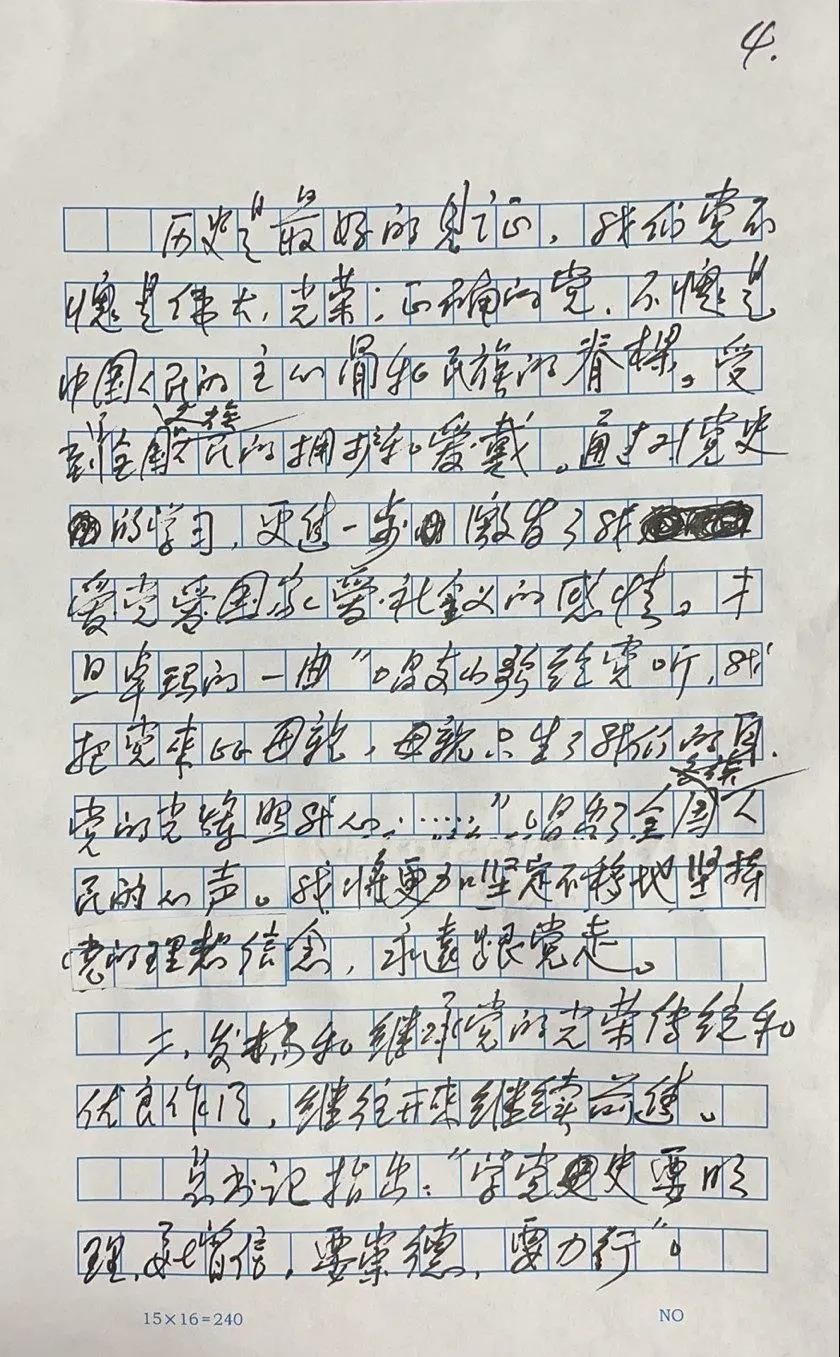 4.
历史是最好的见证，我们党不
愧是伟大、光荣、正确的党，不愧是
中国人民的主心骨和民族的脊樑。受
各族
到全国人民的拥护和爱戴。通过对党史
的学习，更进一步激发了我
爱党爱国家爱社会主义的感情。才
旦卓玛的一曲"唱支山歌给党听，我
把党来比母亲，母亲只生了我们的身，
各族
党的光辉照我心……"唱出了全国人
民的心声。我将更加坚定不移地坚持
党的理想信念，永远跟党走。
二、发扬和继承党的光荣传统和
优良作风，继往开来继续前进。
总书记指出："学党史要明
理，要增信，要崇德，要力行"。
15×16=240
NO